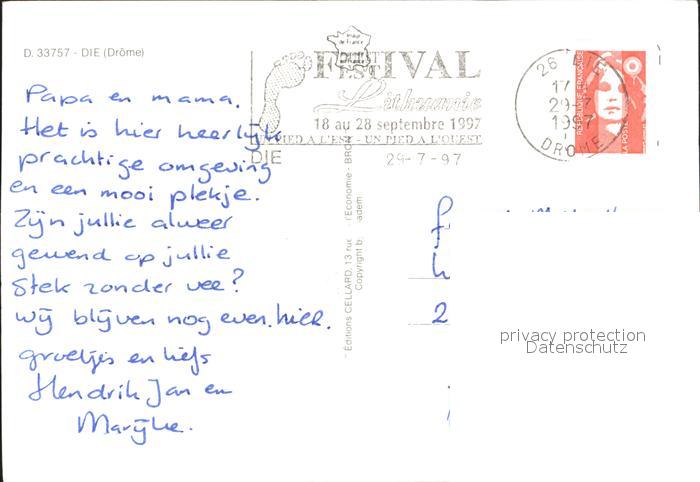 D. 33757 - DIE (Drôme)
FESTIVAL
Lithuanie
18 au 28 septembre 1997
UN PIED A L'EST - UN PIED A L'OUEST
DIE
29-7-97
26 DIE
17
29-7
1997
DROME
RÉPUBLIQUE FRANÇAISE
LA POSTE
Papa en mama.
Het is hier heerlijk
prachtige omgeving
en een mooi plekje.
Zijn jullie alweer
gewend op jullie
stek zonder vee?
Wij blijven nog even hier.
groetjes en liefs
Hendrik Jan en
Marijke.
Éditions CELLARD, 13 rue
l'Économie - BRON
Copyright
2
privacy protection
Datenschutz